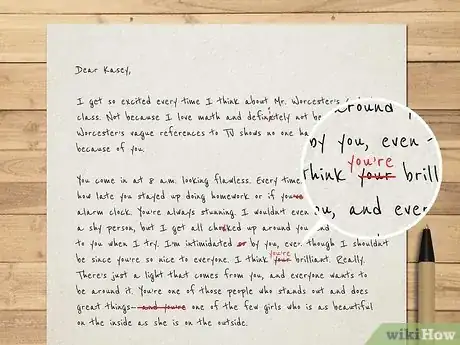 Dear Kasey,
I get so excited every time I think about Mr. Worcester's
class. Not because I love math and definitely not be
Worcester's vague references to TV shows no one ha
because of you.
You come in at 8 a.m. looking flawless. Every time
how late you stayed up doing homework or if you
alarm clock. You're always stunning. I wouldn't even
a shy person, but I get all choked up around you and
to you when I try. I'm intimidated or by you, even though I shouldn't
you're
be since you're so nice to everyone. I think your brilliant. Really.
There's just a light that comes from you, and everyone wants to
be around it. You're one of those people who stands out and does
great things- and you're one of the few girls who is as beautiful
on the inside as she is on the outside.
around
by you, even
you're
think your brill
ou, and ever
wikiHow